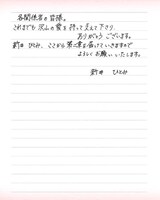 各関係者の皆様。
これまでも沢山の愛を持って支えて下さり
ありがとうございます。
新田 ひとみ、ここから第二章を届けていきますので
よろしくお願いいたします。
新田 ひとみ